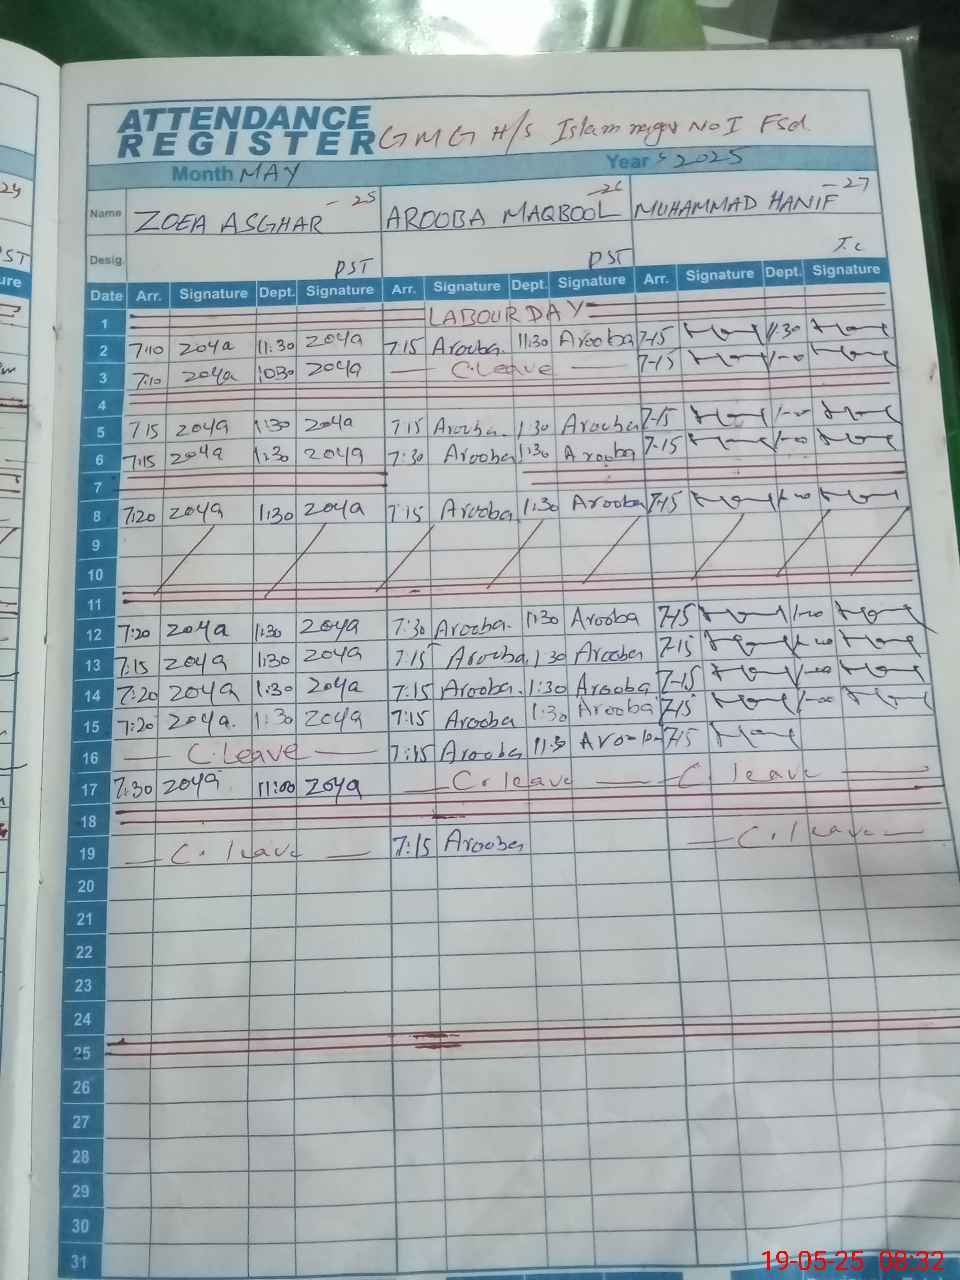 ATTENDANCE
REGISTER GMG H/S Islam nagar No I Fsd.
Month MAY Year 2025
Name ZOEA ASGHAR - 25 AROOBA MAQBOOL - 26 MUHAMMAD HANIF - 27
Desig. PST PST
Date Arr. Signature Dept. Signature Arr. Signature Dept. Signature Arr. Signature Dept. Signature
1 LABOUR DAY
2 7:10 zoya 11:30 zoya 7:15 Arooba. 11:30 Arooba 7-15 11.30
3 7:10 zoya 1030 zoya C.Leave 7-15 1-00
4
5 7:15 zoya 1:30 zoya 7:15 Arooba. 1:30 Arooba 7-15 1-00
6 7:15 zoya 1:30 zoya 7:30 Arooba 1:30 Arooba 7-15 1-00
7
8 7:20 zoya 1:30 zoya 7:15 Arooba 1:30 Arooba 7-15 1-00
9
10
11
12 7:20 zoya 1:30 zoya 7:30 Arooba. 1:30 Arooba 7-15 1-00
13 7:15 zoya 1:30 zoya 7:15 Arooba 1:30 Arooba 7-15 1-00
14 7:20 zoya 1:30 zoya 7:15 Arooba. 1:30 Arooba 7-15 1-00
15 7:20 zoya. 1:30 zoya 7:15 Arooba 1:30 Arooba 7-15 1-00
16 C.Leave 7:15 Arooba 11:30 Arooba 7-15
17 7:30 zoya 11:00 zoya C.leave C leave
18
19 C.leave 7:15 Arooba C.leave
20
21
22
23
24
25
26
27
28
29
30
31
19-05-25 08:32